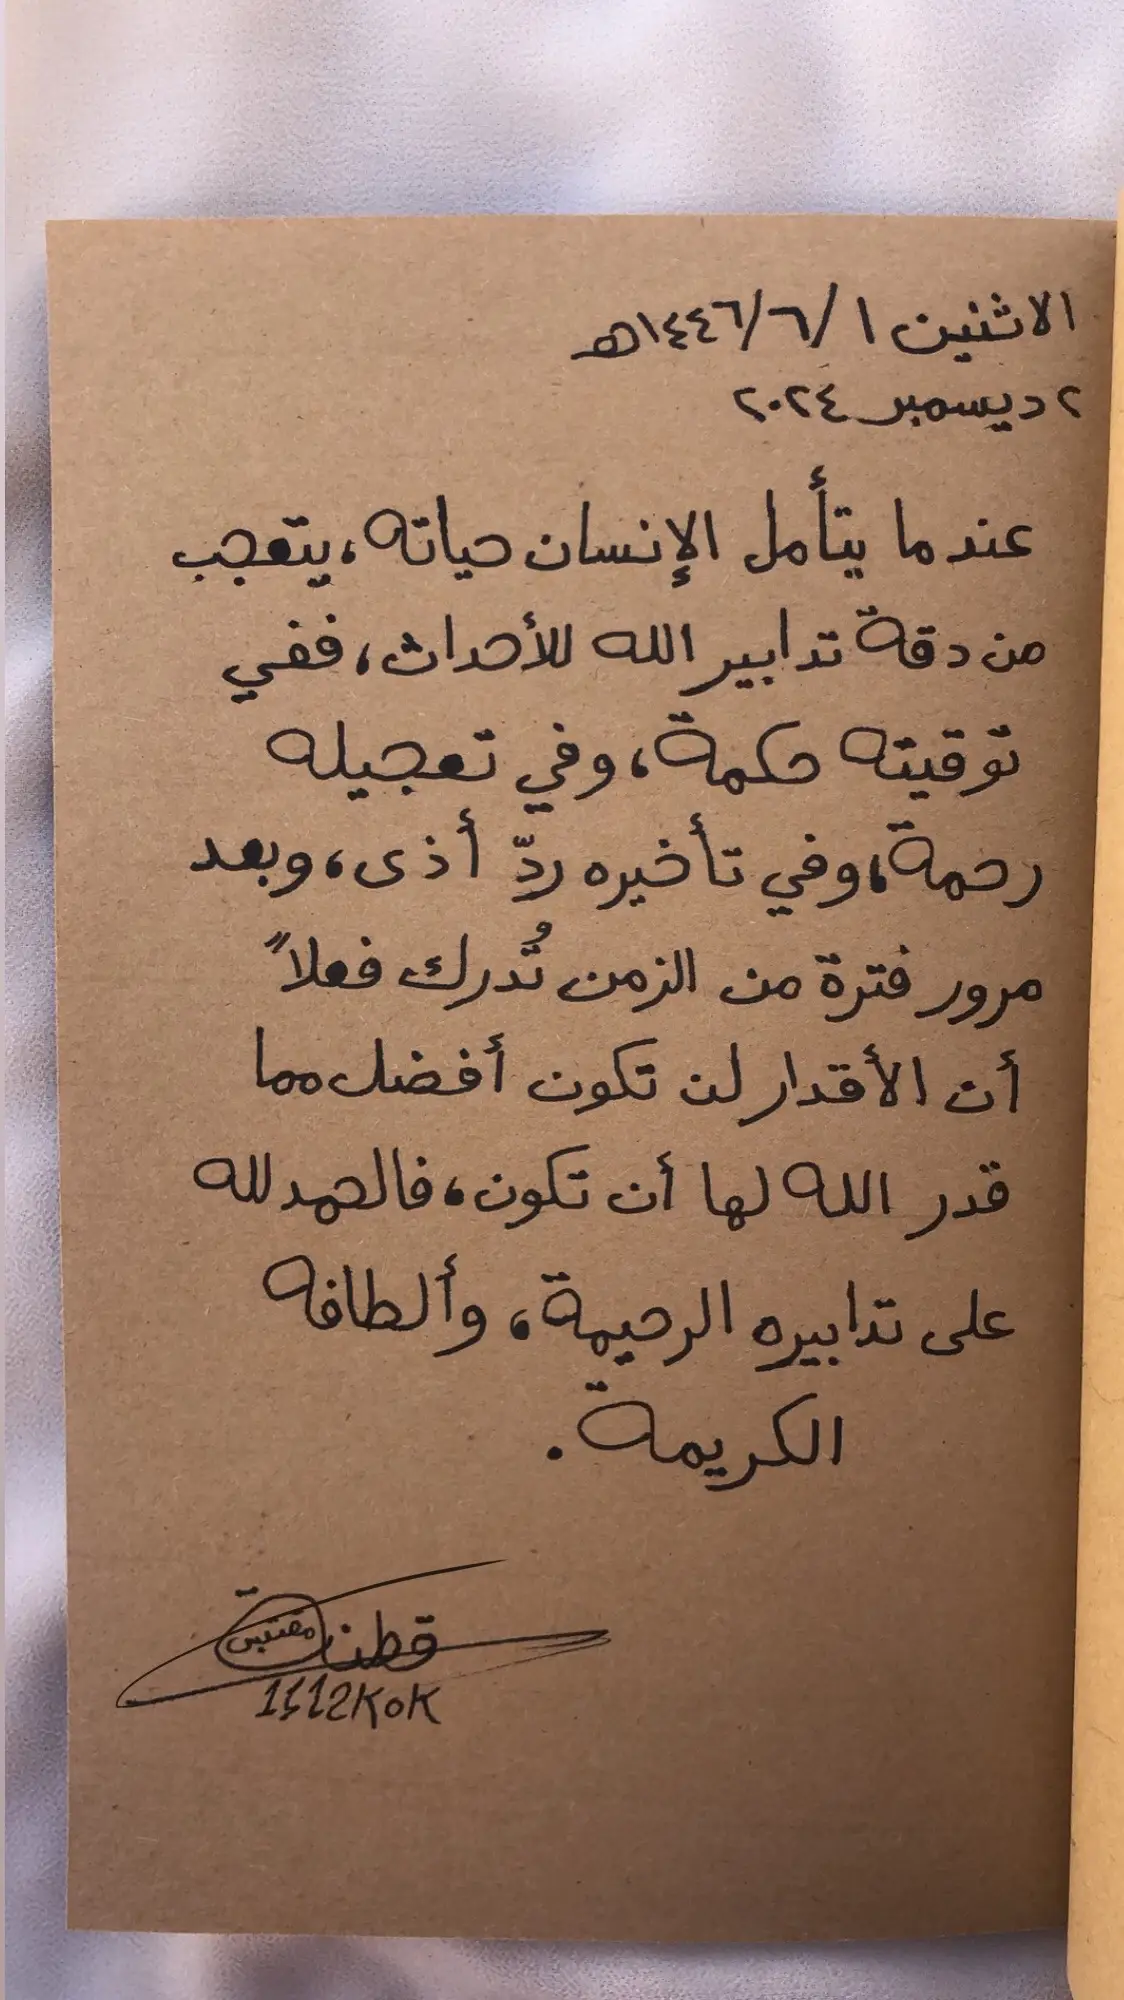 الاثنين ١/٦/١٤٤٦هـ
٢ ديسمبر ٢٠٢٤
عندما يتأمل الإنسان حياته، يتعجب
من دقة تدابير الله للأحداث، ففي
توقيته حكمة، وفي تعجيله
رحمة، وفي تأخيره ردّ أذى، وبعد
مرور فترة من الزمن تُدرك فعلاً
أن الأقدار لن تكون أفضل مما
قدر الله لها أن تكون، فالحمدلله
على تدابيره الرحيمة، وألطافه
الكريمة.
قطنة
مقتبس